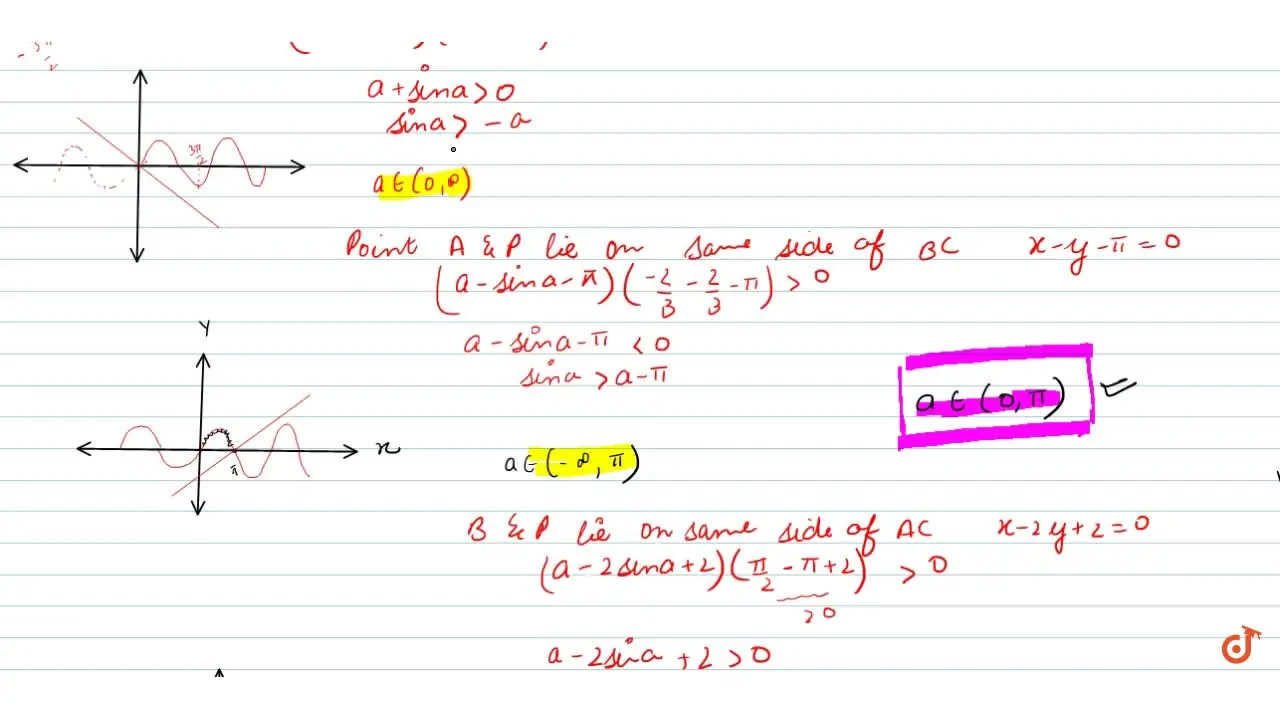 - 3π/2
a + sin a > 0
sin a > - a
3π/2
a ∈ (0, ∞)
Point A & P lie on same side of BC x - y - π = 0
(a - sin a - π)(-2/3 - 2/3 - π) > 0
a - sin a - π < 0
sin a > a - π
a ∈ (0, π) =
Y
x
π
a ∈ (-∞, π)
B & P lie on same side of AC x - 2y + 2 = 0
(a - 2 sin a + 2)(π/2 - π + 2) > 0
> 0
a - 2 sin a + 2 > 0